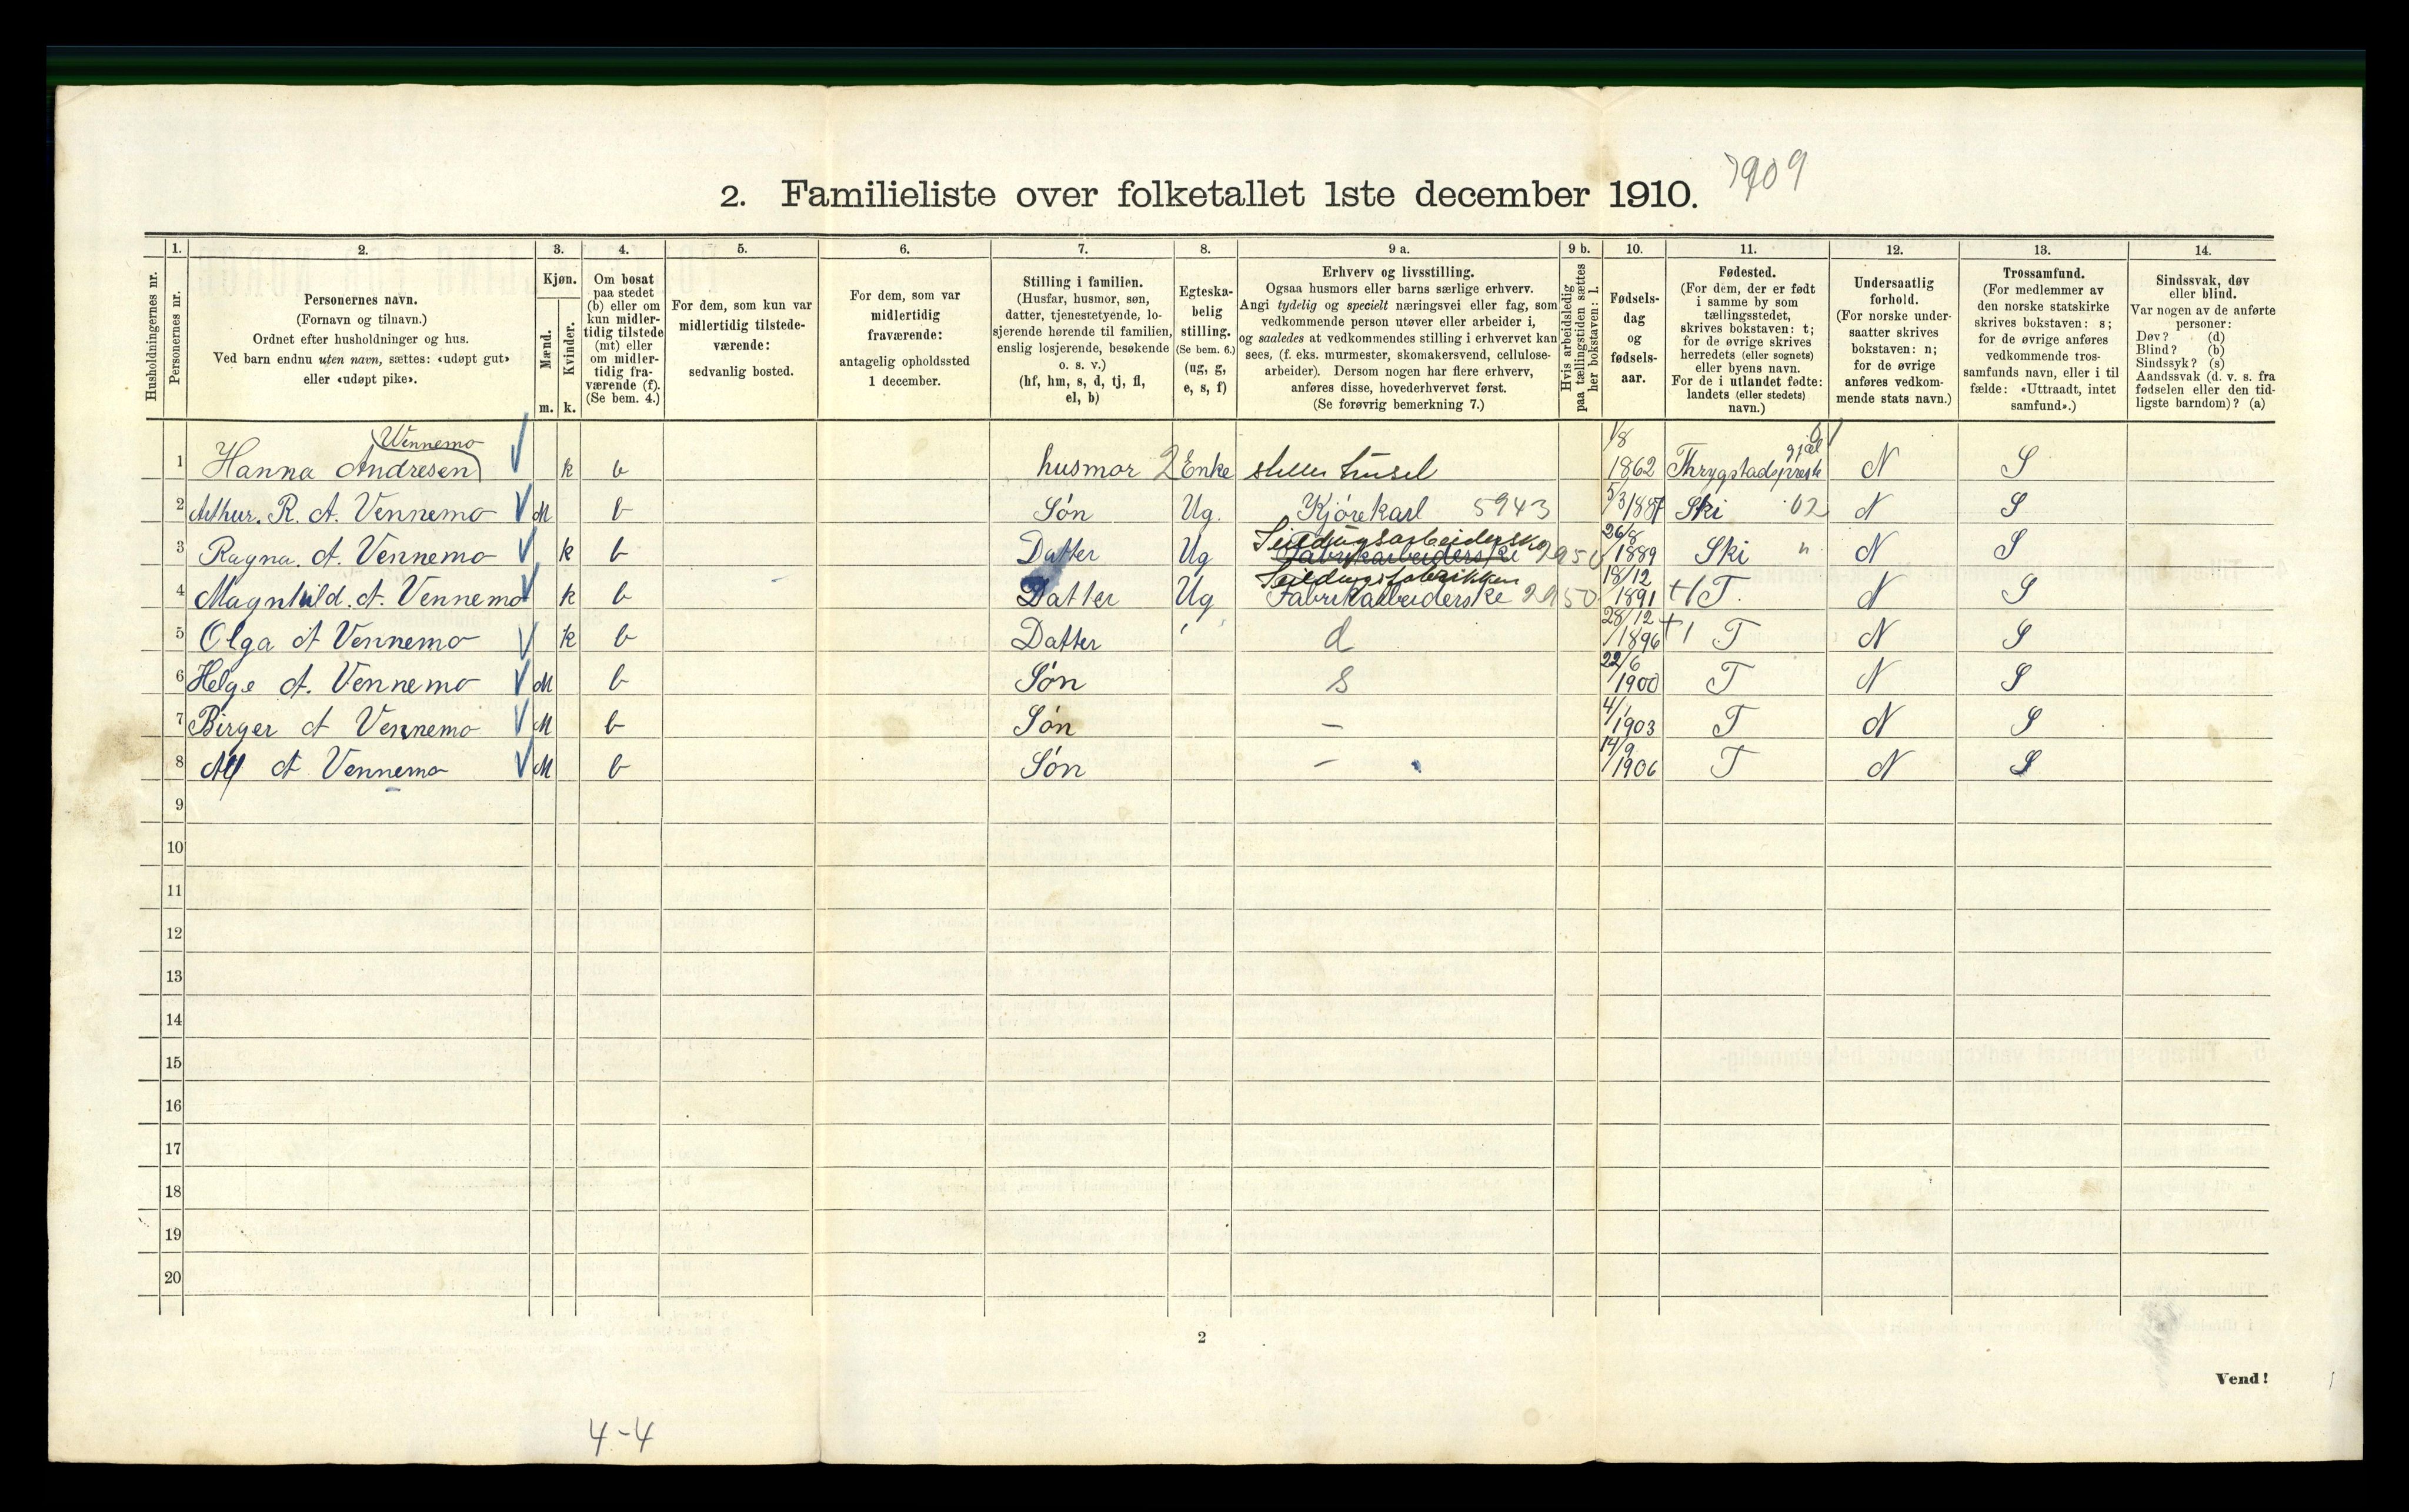 2. Familieliste over folketallet 1ste december 1910. 7909
Husholdningernes nr.
1. Personernes nr.
2. Personernes navn. (Fornavn og tilnavn.) Ordnet efter husholdninger og hus. Ved barn endnu uten navn, sættes: «udøpt gut» eller «udøpt pike».
3. Kjøn. Mænd. m. Kvinder. k.
4. Om bosat paa stedet (b) eller om kun midlertidig tilstede (mt) eller om midlertidig fraværende (f). (Se bem. 4.)
5. For dem, som kun var midlertidig tilstedeværende: sedvanlig bosted.
6. For dem, som var midlertidig fraværende: antagelig opholdssted 1 december.
7. Stilling i familien. (Husfar, husmor, søn, datter, tjenestetyende, losjerende hørende til familien, enslig losjerende, besøkende o. s. v.) (hf, hm, s, d, tj, fl, el, b)
8. Egteskabelig stilling. (Se bem. 6.) (ug, g, e, s, f)
9 a. Erhverv og livsstilling. Ogsaa husmors eller barns særlige erhverv. Angi tydelig og specielt næringsvei eller fag, som vedkommende person utøver eller arbeider i, og saaledes at vedkommendes stilling i erhvervet kan sees, (f. eks. murmester, skomakersvend, cellulosearbeider). Dersom nogen har flere erhverv, anføres disse, hovederhvervet først. (Se forøvrig bemerkning 7.)
9 b. Hvis arbeidsledig paa tællingstiden sættes her bokstaven: l.
10. Fødselsdag og fødselsaar.
11. Fødested. (For dem, der er født i samme by som tællingsstedet, skrives bokstaven: t; for de øvrige skrives herredets (eller sognets) eller byens navn. For de i utlandet fødte: landets (eller stedets) navn.)
12. Undersaatlig forhold. (For norske undersaatter skrives bokstaven: n; for de øvrige anføres vedkommende stats navn.)
13. Trossamfund. (For medlemmer av den norske statskirke skrives bokstaven: s; for de øvrige anføres vedkommende trossamfunds navn, eller i tilfælde: «Uttraadt, intet samfund».)
14. Sindssvak, døv eller blind. Var nogen av de anførte personer: Døv? (d) Blind? (b) Sindssyk? (s) Aandssvak (d. v. s. fra fødselen eller den tidligste barndom)? (a)
1 Hanna Andresen Wennemo k b husmor 2 Enke steller husel 1/8 1862 Thrygstadspræstegjæl N S
2 Arthur. R. A. Vennemo M b Søn Ug. Kjørekarl 5943 5/3 1887 Ski 02 N S
3 Ragna. A. Vennemo k b Datter Ug Seildugsarbeiderske Fabrikarbeiderske 2950 26/8 1889 Ski " N S
4 Magnhild. A. Vennemo k b Datter Ug Seildugsfabrikken Fabrikarbeiderske 2950 18/12 1891 T. N S
5 Olga A Vennemo k b Datter d 28/12 1896 T N S
6 Helge A. Vennemo M b Søn s 22/6 1900 T N S
7 Birger A Vennemo M b Søn – 4/1 1903 T N S
8 Alf A Vennemo M b Søn – 14/9 1906 T N S
9
10
11
12
13
14
15
16
17
18
19
20
2
Vend!
4-4